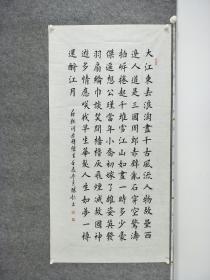 大江東去浪淘盡千古風流人物故壘西
邊人道是三國周郎赤壁亂石穿空驚濤
拍岸捲起千堆雪江山如畫一時多少豪
傑遙想公瑾當年小喬初嫁了雄姿英發
羽扇綸巾談笑間檣櫓灰飛煙滅故國神
遊多情應笑我早生華髮人生如夢一樽
還酹江月
蘇軾詞赤壁懷古